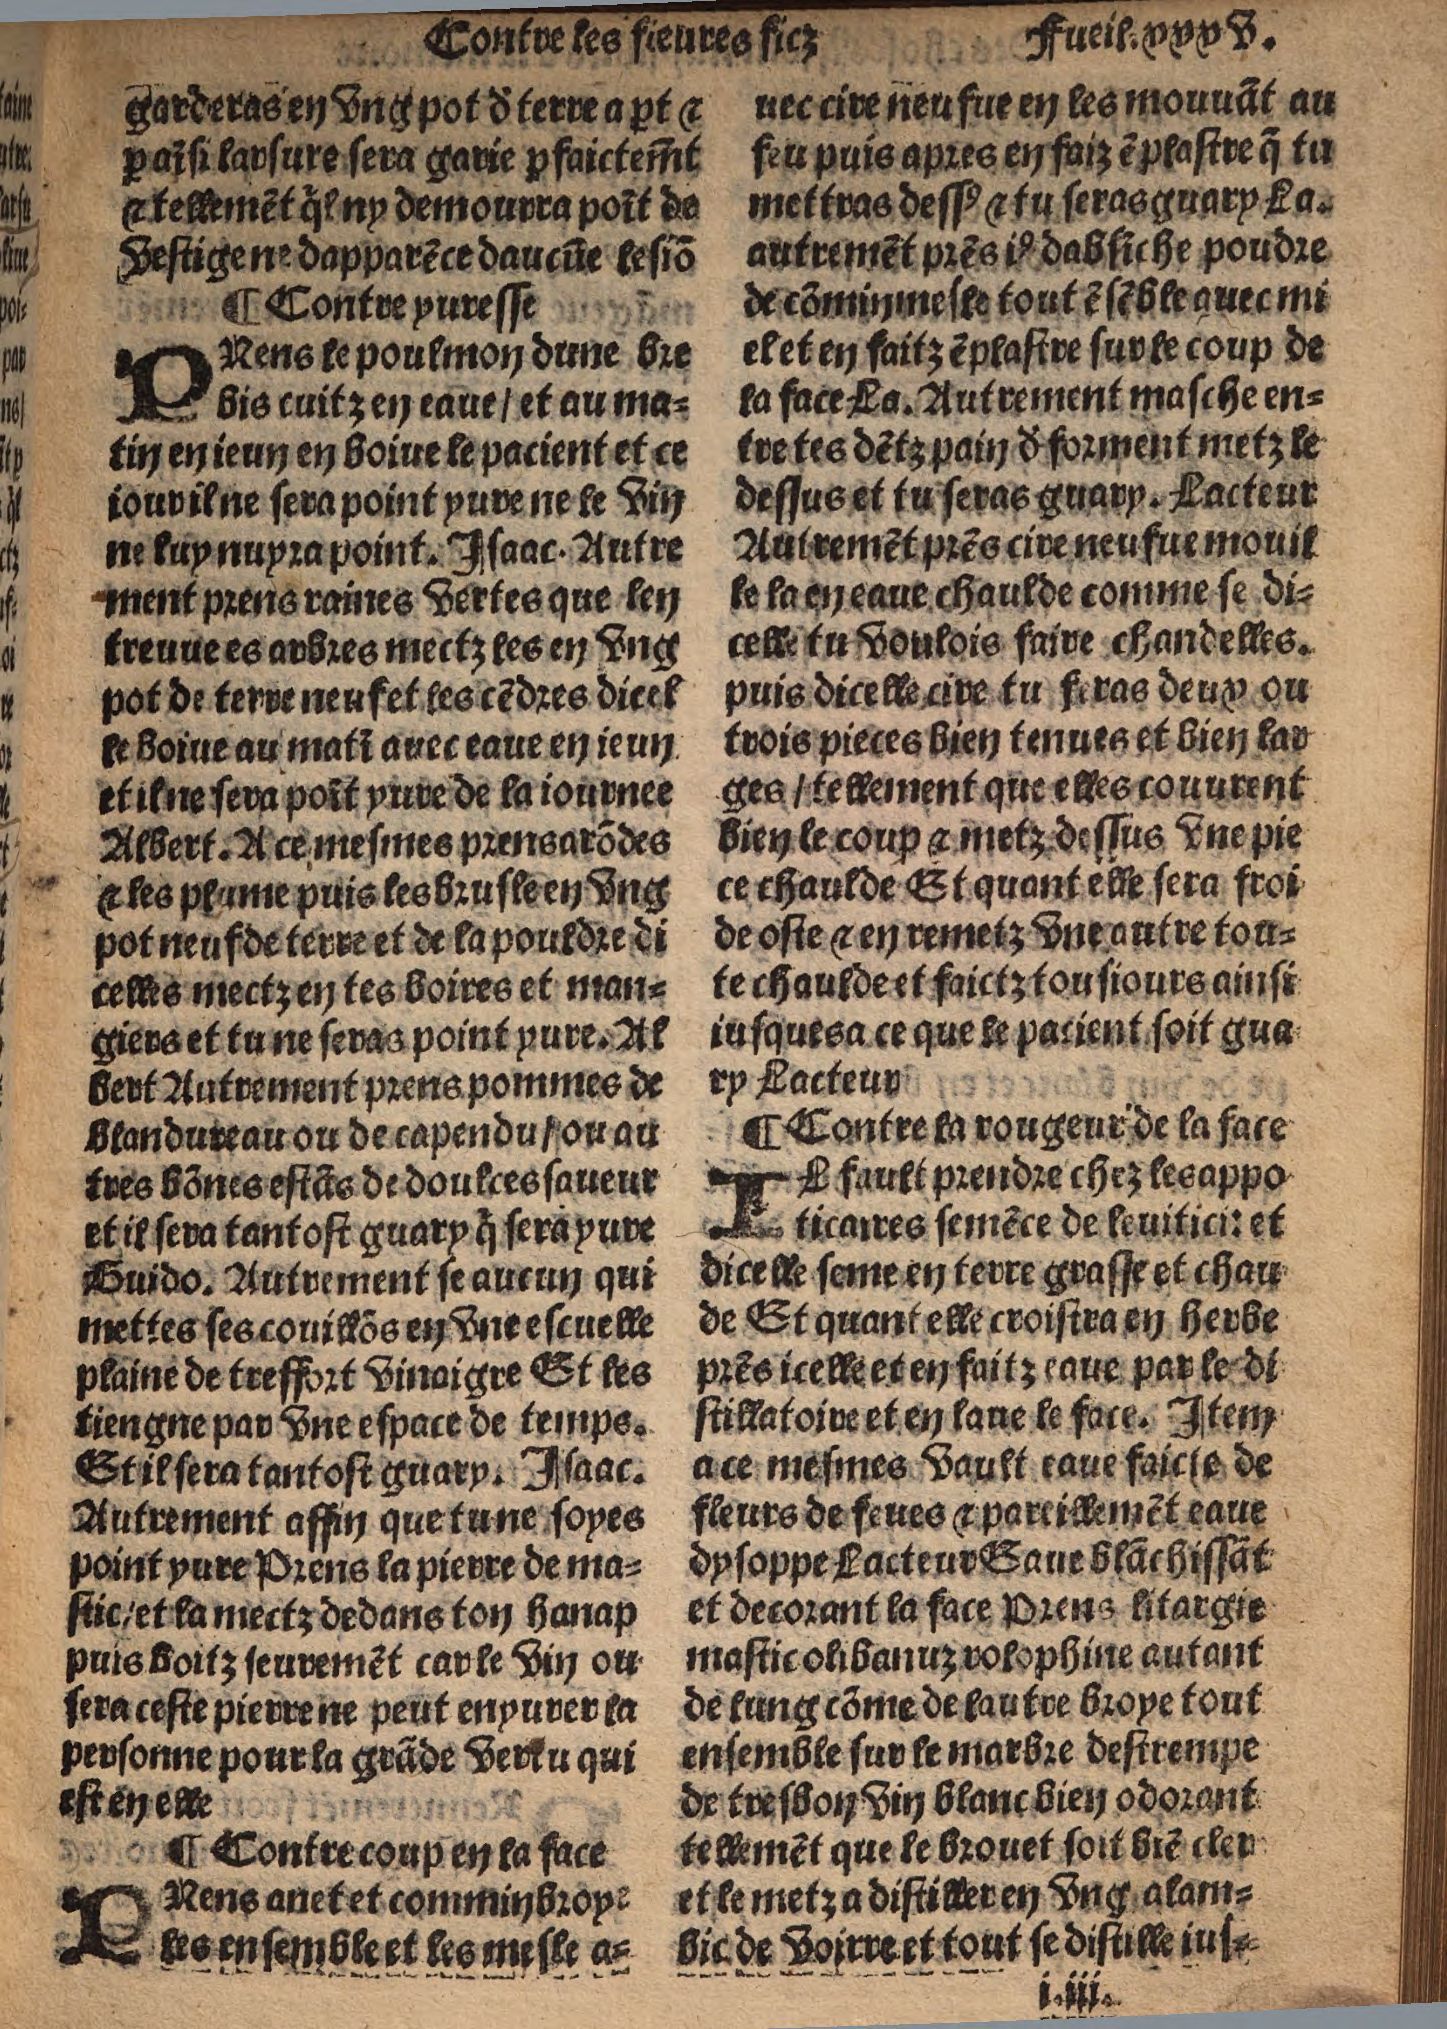 Contre les fieures ficz Fueil. xxxv.
garderas en vng pot d̄ terre a pt̄ ⁊
p̲ aīsi larsure sera garie p̲faictem̄t
⁊ tellemēt q̄l ny demourra poīt de
vestige ne dapparēce daucūe lesiō
¶ Contre yuresse
PRens le poulmon dune bre
bis cuitz en eaue / et au ma⸗
tin en ieun en boiue le pacient et ce
iour il ne sera point yure ne le vin
ne luy nuyra point. Isaac. Autre
ment prens raines vertes que len
treuue es arbres mectz les en vng
pot de terre neuf et les cēdres dicel
le boiue au matī auec eaue en ieun
et il ne sera poīt yure de la iournee
Albert. A ce mesmes prens arōdes
⁊ les plume puis les brusle en vng
pot neuf de terre et de la pouldre di
celles mectz en tes boires et man⸗
giers et tu ne seras point yure. Al
bert Autrement prens pommes de
blandureau ou de capendu / ou au
tres bōnes estās de doulces saueur
et il sera tantost guary q̄ sera yure
Guido. Autrement se aucun qui
mettes ses couillōs en vne escuelle
plaine de treffort vinaigre Et les
tiengne par vne espace de temps.
Et il sera tantost guary. Isaac.
Autrement affin que tu ne soyes
point yure Prens la pierre de ma⸗
stic / et la mectz dedans ton hanap
puis boitz seuremēt car le vin ou
sera ceste pierre ne peut enyurer la
personne pour la grāde vertu qui
est en elle
¶ Contre coup en la face
PRens anet et commin broye
les ensemble et les mesle a⸗
uec cire neufue en les mouuāt au
feu puis apres en faiz ēplastre q̄ tu
mettras dessꝰ ⁊ tu seras guary La.
autremēt prēs iꝰ dabsiche poudre
de cōmin mesle tout ēsēble auec mi
el et en faitz ēplastre sur le coup de
la face La. Autrement masche en⸗
tre tes dētz pain d̄ forment metz le
dessus et tu seras guary. Lacteur
Autremēt prēs cire neufue mouil
le la en eaue chaulde comme se di⸗
celle tu voulois faire chandelles.
puis dicelle cire tu feras deux ou
trois pieces bien tenues et bien lar
ges / tellement que elles couurent
bien le coup ⁊ metz dessus vne pie
ce chaulde Et quant elle sera froi
de oste ⁊ en remetz vne autre tou⸗
te chaulde et faictz tousiours ainsi
iusques a ce que le pacient soit gua
ry Lacteur
¶ Contre la rougeur de la face
IL fault prendre chez les appo
ticaires semēce de leuitici: et
dicelle seme en terre grasse et chau
de Et quant elle croistra en herbe
prēs icelle et en faitz eaue par le di
stillatoire et en laue le face. Item
a ce mesmes vault eaue faicte de
fleurs de feues ⁊ pareillemēt eaue
dysoppe Lacteur Eaue blāchissāt
et decorant la face Prens litargie
mastic olibanuz colophine autant
de lung cōme de lautre broye tout
ensemble sur le marbre destrempe
de tresbon vin blanc bien odorant
tellemēt que le brouet soit biē cler
et le metz a distiller en vng alam⸗
bic de voirre et tout se distille ius⸗
i.iii.